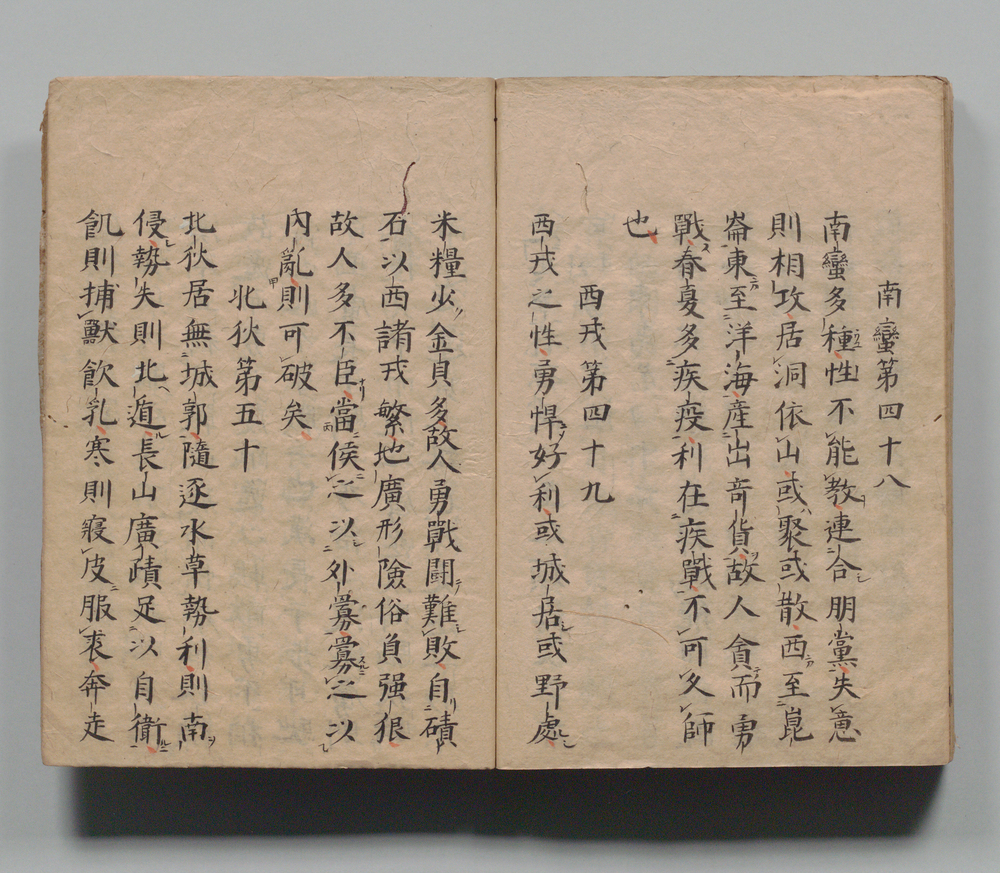 南蠻第四十八
南蠻多種性不能教連合朋黨失意
則相攻居洞依山或聚或散西至崑
崙東至洋海產出奇貨故人貪而勇
戰春夏多疾疫利在疾戰不可久師
也
西戎第四十九
西戎之性勇悍好利或城居或野處
米糧少金貝多故人勇戰鬪難敗自磧
石以西諸戎繁地廣形險俗負强狠
故人多不臣當候之以外釁之以
內亂則可破矣
北狄第五十
北狄居無城郭隨逐水草勢利則南
侵勢失則北遁長山廣磧足以自衛
飢則捕獸飲乳寒則寢皮服裘奔走